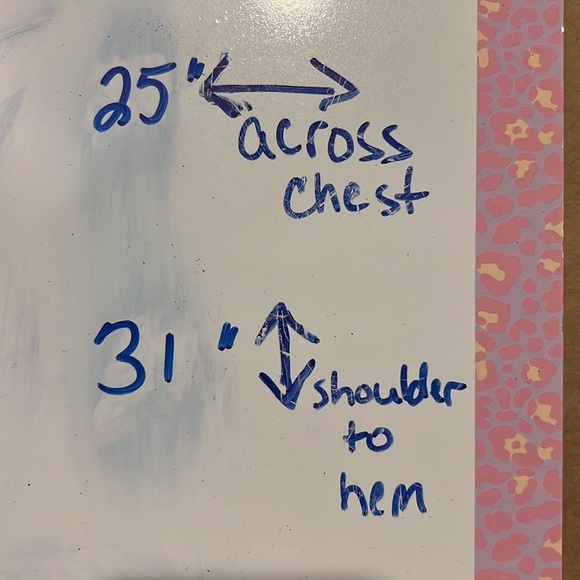 25" ↔ across
chest
31" ↕ shoulder
to
hem